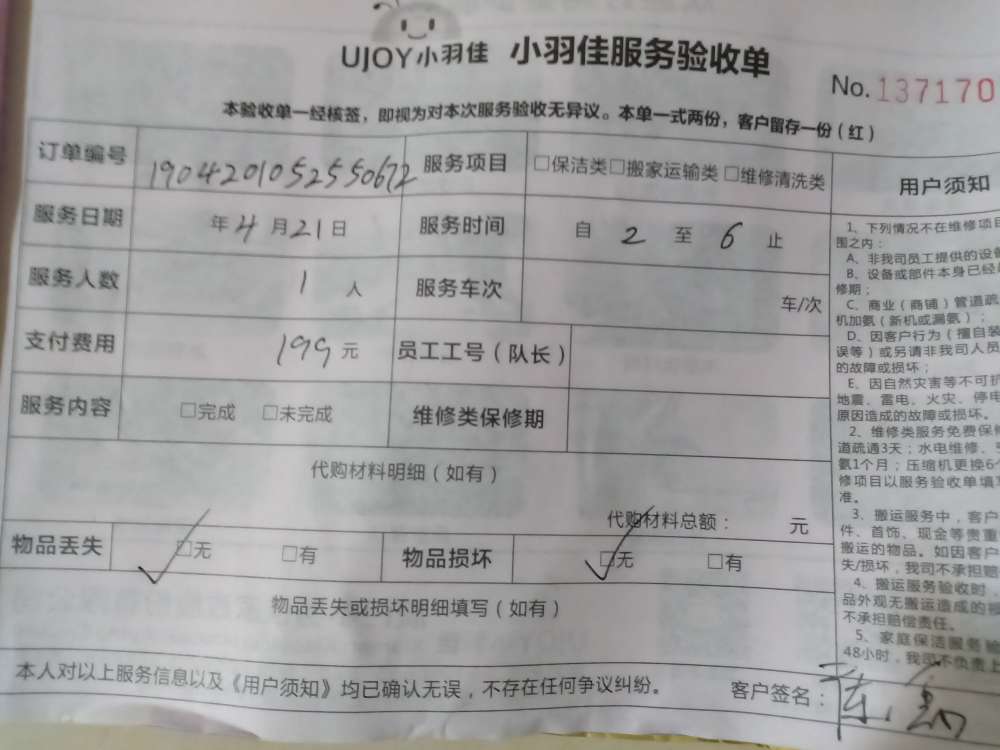 UJOY小羽佳 小羽佳服务验收单
No. 137170
本验收单一经核签，即视为对本次服务验收无异议。本单一式两份，客户留存一份（红）
订单编号 19042010525550672 服务项目 □保洁类□搬家运输类 □维修清洗类
服务日期 年4月21日 服务时间 自 2 至 6 止
服务人数 1 人 服务车次 车/次
支付费用 199元 员工工号（队长）
服务内容 □完成 □未完成 维修类保修期
代购材料明细（如有）
代购材料总额： 元
物品丢失 □无 □有 物品损坏 □无 □有
物品丢失或损坏明细填写（如有）
本人对以上服务信息以及《用户须知》均已确认无误，不存在任何争议纠纷。 客户签名：
用户须知
1、下列情况不在维修项目
围之内：
A、非我司员工提供的设备
B、设备或部件本身已经
修期；
C、商业（商铺）管道疏
机加氨（新机或漏氨）；
D、因客户行为（擅自装
误等）或另请非我司人员
的故障或损坏；
E、因自然灾害等不可抗
地震、雷电、火灾、停电
原因造成的故障或损坏。
2、维修类服务免费保修
道疏通3天；水电维修、
氨1个月；压缩机更换6个
修项目以服务验收单填写
准。
3、搬运服务中，客户
件、首饰、现金等贵重
搬运的物品。如因客户
失/损坏，我司不承担赔
4、搬运服务验收时，
品外观无搬运造成的损
不承担赔偿责任。
5、家庭保洁服务验
48小时，我司不负责上